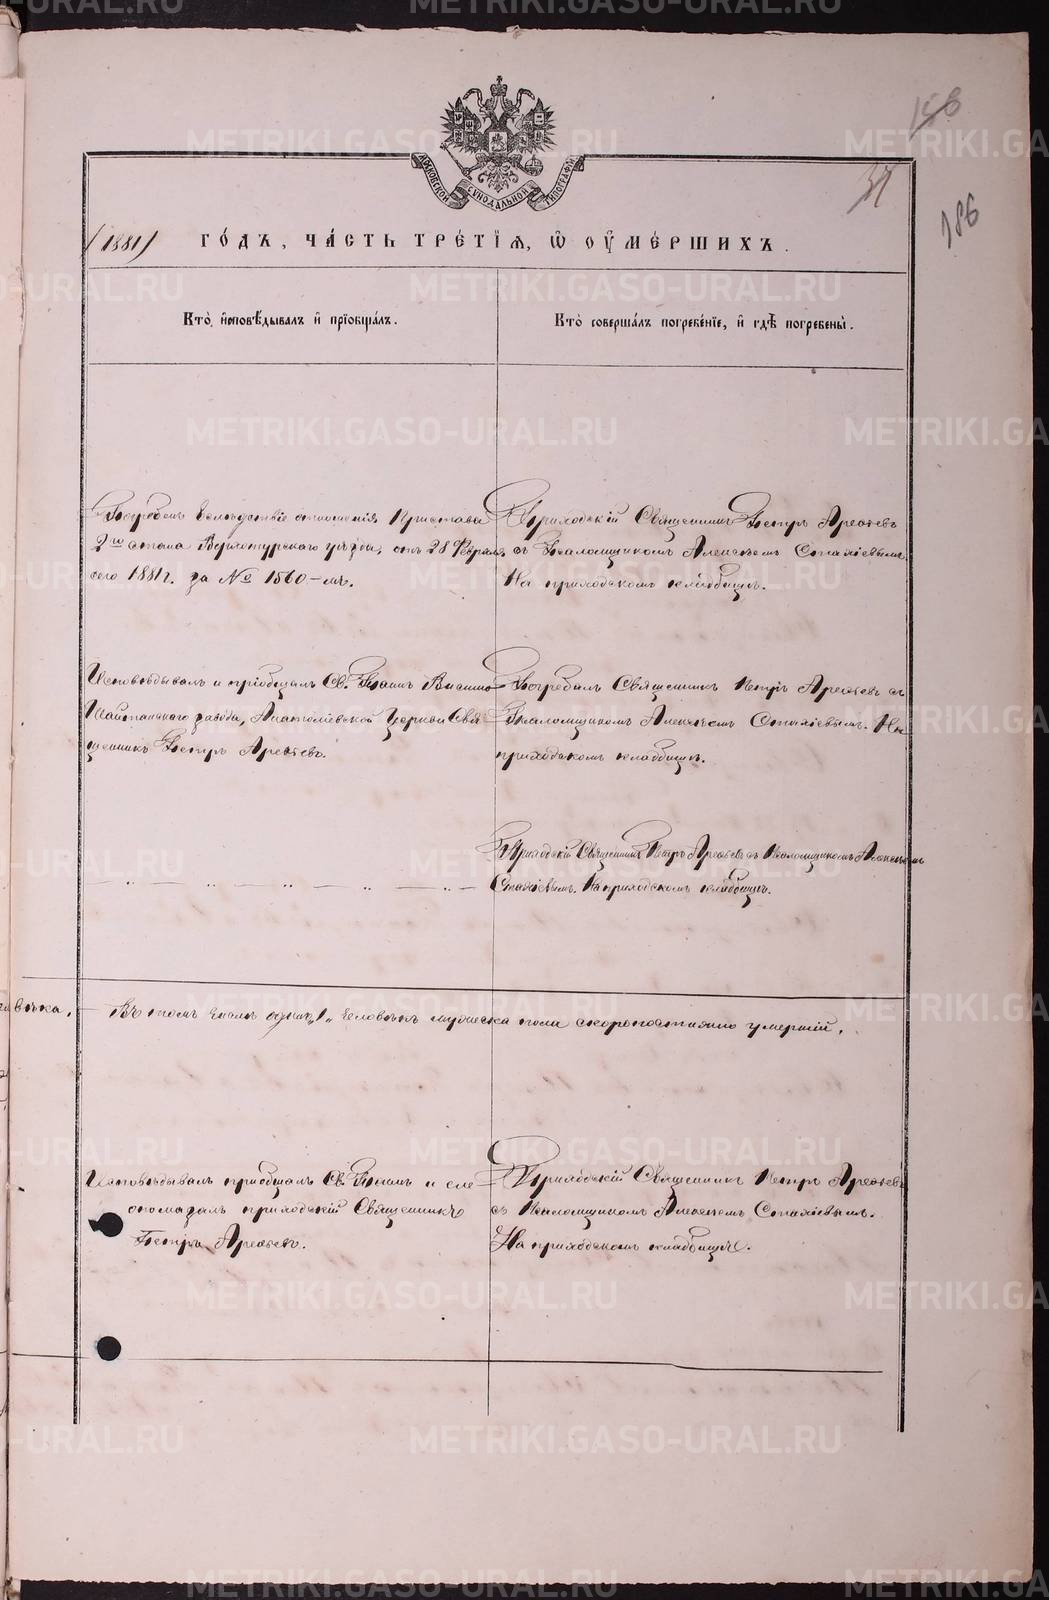 МОСКОВСКОЙ СѴНОДАЛЬНОЙ ТИПОГРАФІИ
37
186
(1881) ГО́ДЪ, ЧА́СТЬ ТРЕ́ТІѦ, Ѡ ОУМЕ́РШИХЪ.
Кто̀ и҆сповѣ́дывалъ и҆ прїобща́лъ.
Кто̀ соверша́лъ погребе́нїе, и҆ гдѣ̀ погребены̀.
Погребенъ вслѣдствіе отношенія Пристава
2го стана Верхотурскаго уѣзда, отъ 28 Февраля
сего 1881 г. за № 1560-мъ.
Приходскій Священникъ Петръ Арефьевъ
съ Псаломщикомъ Алексѣемъ Стахіевымъ.
На приходскомъ кладбищѣ.
Исповѣдывалъ и пріобщалъ Св. Таинъ Висимо
Шайтанскаго завода, Анатоліевской Церкви Свя
щенникъ Петръ Арефьевъ.
Погребалъ Священникъ Петръ Арефьевъ съ
Псаломщикомъ Алексѣемъ Стахіевымъ. На
приходскомъ кладбищѣ.
Приходскій Священникъ Петръ Арефьевъ съ Псаломщикомъ Алексѣемъ
Стахіевымъ. На приходскомъ кладбищѣ.
Въ томъ числѣ одинъ „1„ человѣкъ мужеска пола скоропостижно умершій.
Исповѣдывалъ пріобщалъ Св. Таинъ и еле
опомазалъ приходскій Священникъ
Петръ Арефьевъ.
Приходскій Священникъ Петръ Арефьевъ
съ Псаломщикомъ Алексѣемъ Стахіевымъ.
На приходскомъ кладбищѣ.
METRIKI.GASO-URAL.RU